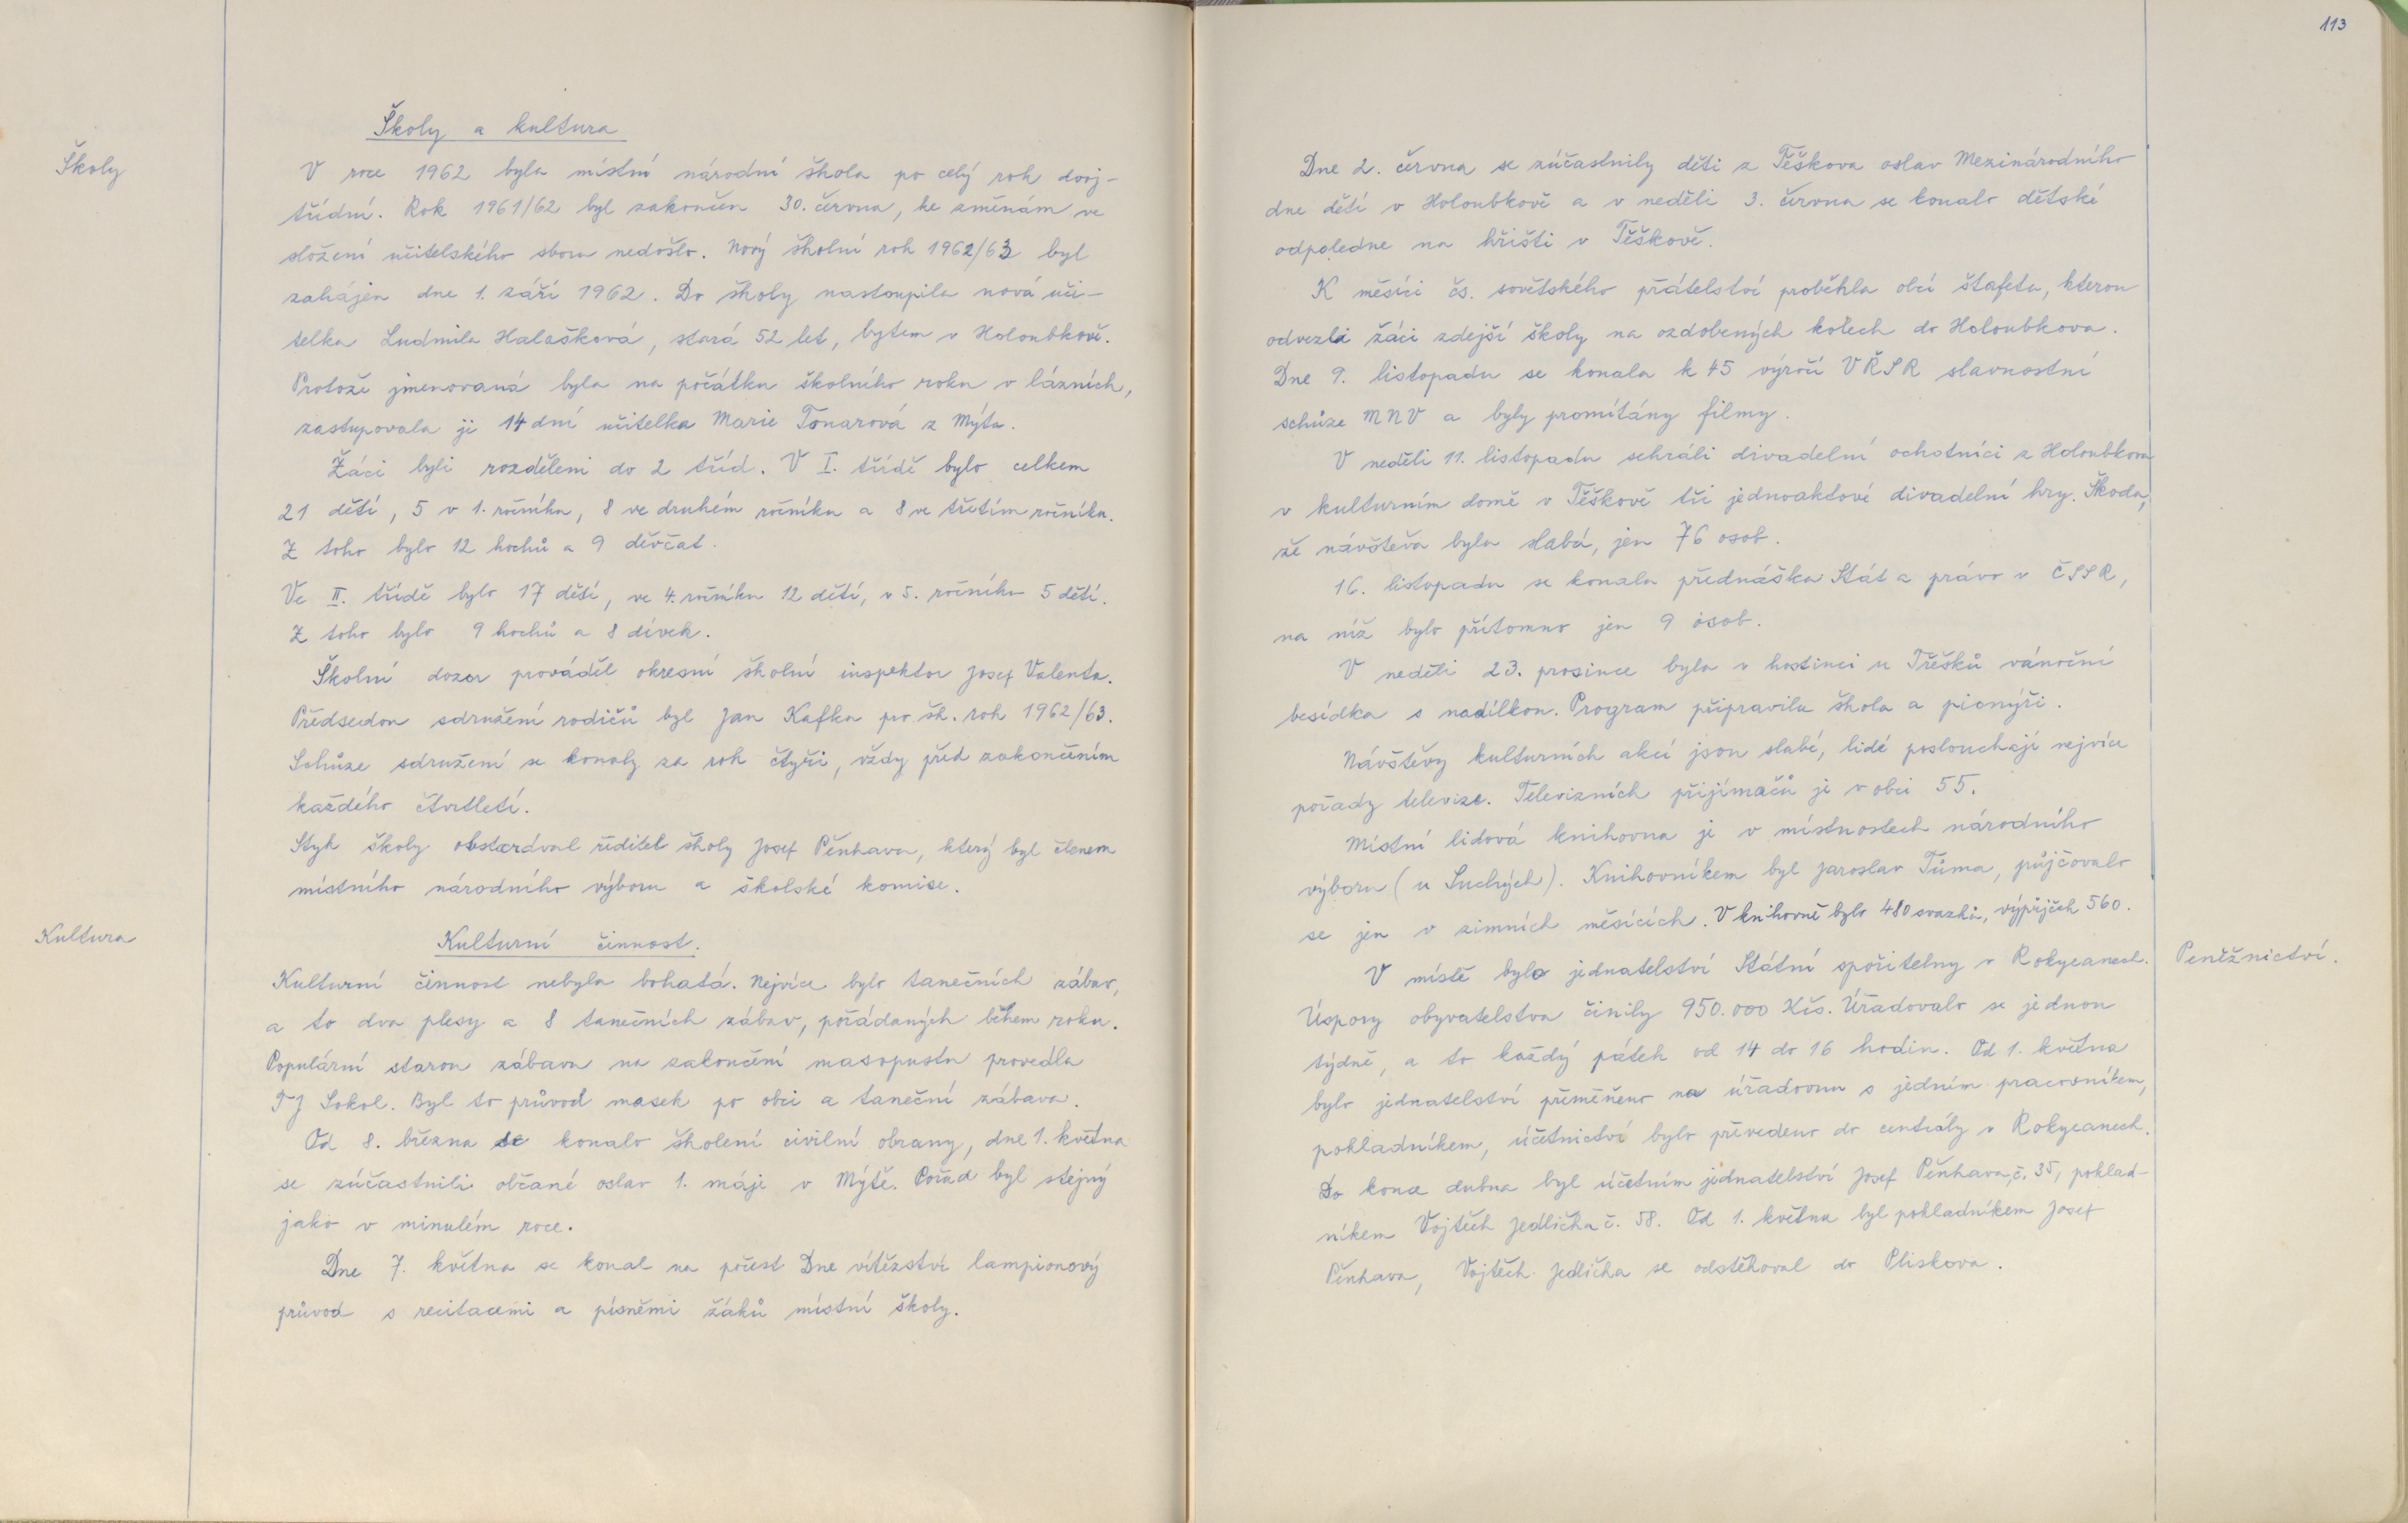 Školy a kultura
Školy
V roce 1962 byla místní národní škola po celý rok dvoj-
třídní. Rok 1961/62 byl zakončen 30. června, ke změnám ve
složení učitelského sboru nedošlo. Nový školní rok 1962/63 byl
zahájen dne 1. září 1962. Do školy nastoupila nová uči-
telka Ludmila Halašková, stará 52 let, bytem v Holoubkově.
Protože jmenovaná byla na počátku školního roku v lázních,
zastupovala ji 14 dní učitelka Marie Tonarová z Mýta.
Žáci byli rozděleni do 2 tříd. V I. třídě bylo celkem
21 dětí, 5 v 1. ročníku, 8 ve druhém ročníku a 8 ve třetím ročníku.
Z toho bylo 12 hochů a 9 děvčat.
Ve II. třídě bylo 17 dětí, ve 4. ročníku 12 dětí, v 5. ročníku 5 dětí.
Z toho bylo 9 hochů a 8 dívek.
Školní dozor prováděl okresní školní inspektor Josef Valenta.
Předsedou sdružení rodičů byl Jan Kafka pro šk. rok 1962/63.
Schůze sdružení se konaly za rok čtyři, vždy před zakončením
každého čtvrtletí.
Styk školy obstarával ředitel školy Josef Pěnkava, který byl členem
místního národního výboru a školské komise.
Kultura
Kulturní činnost.
Kulturní činnost nebyla bohatá. Nejvíce bylo tanečních zábav,
a to dva plesy a 8 tanečních zábav, pořádaných během roku.
Populární starou zábavu na zakončení masopustu provedla
TJ Sokol. Byl to průvod masek po obci a taneční zábava.
Od 8. března se konalo školení civilní obrany, dne 1. května
se zúčastnili občané oslav 1. máje v Mýtě. Pořad byl stejný
jako v minulém roce.
Dne 7. května se konal na počest Dne vítězství lampionový
průvod s recitacemi a písněmi žáků místní školy.
113
Dne 2. června se zúčastnily děti z Těškova oslav Mezinárodního
dne dětí v Holoubkově a v neděli 3. června se konalo dětské
odpoledne na hřišti v Těškově.
K měsíci čs. sovětského přátelství proběhla obcí štafeta, kterou
odvezli žáci zdejší školy na ozdobených kolech do Holoubkova.
Dne 9. listopadu se konala k 45 výročí VŘSR slavnostní
schůze MNV a byly promítány filmy.
V neděli 11. listopadu sehráli divadelní ochotníci z Holoubkova
v kulturním domě v Těškově tři jednoaktové divadelní hry. Škoda,
že návštěva byla slabá, jen 76 osob.
16. listopadu se konala přednáška Stát a právo v ČSSR,
na níž bylo přítomno jen 9 osob.
V neděli 23. prosince byla v hostinci u Třešků vánoční
besídka s nadílkou. Program připravila škola a pionýři.
Návštěvy kulturních akcí jsou slabé, lidé poslouchají nejvíce
pořady televize. Televizních přijímačů je v obci 55.
Místní lidová knihovna je v místnostech národního
výboru (u Suchých). Knihovníkem byl Jaroslav Tůma, půjčovalo
se jen v zimních měsících. V knihovně bylo 480 svazků, výpůjček 560.
Peněžnictví.
V místě bylo jednatelství Státní spořitelny v Rokycanech.
Úspory obyvatelstva činily 950.000 Kčs. Úřadovalo se jednou
týdně, a to každý pátek od 14 do 16 hodin. Od 1. května
bylo jednatelství přeměněno na úřadovnu s jedním pracovníkem,
pokladníkem, účetnictví bylo převedeno do centrály v Rokycanech.
Do konce dubna byl účetním jednatelství Josef Pěnkava, č. 35, poklad-
níkem Vojtěch Jedlička č. 58. Od 1. května byl pokladníkem Josef
Pěnkava, Vojtěch Jedlička se odstěhoval do Plískova.